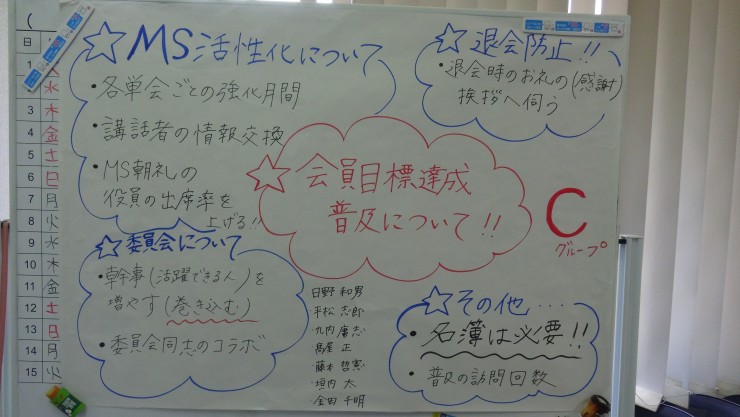 (
日
1
2 水
3 木
4 金
5 土
6 日
7 月
8 火
9 水
10 木
11 金
12 土
13 日
14 月
15 火
☆MS活性化について
・各単会ごとの強化月間
・講話者の情報交換
・MS朝礼の
役員の出席率を
上げる!!
☆退会防止!!
・退会時のお礼の(感謝)
挨拶へ伺う
☆会員目標達成
普及について!!
C
グループ
☆委員会について
・幹事(活躍できる人)を
増やす(巻き込む)
・委員会同志のコラボ
日野 和男
平松 志郎
高屋 正
藤本 哲憲
垣内 太
金田 千明
☆その他・・・・
・名簿は必要!!
・普及の訪問回数